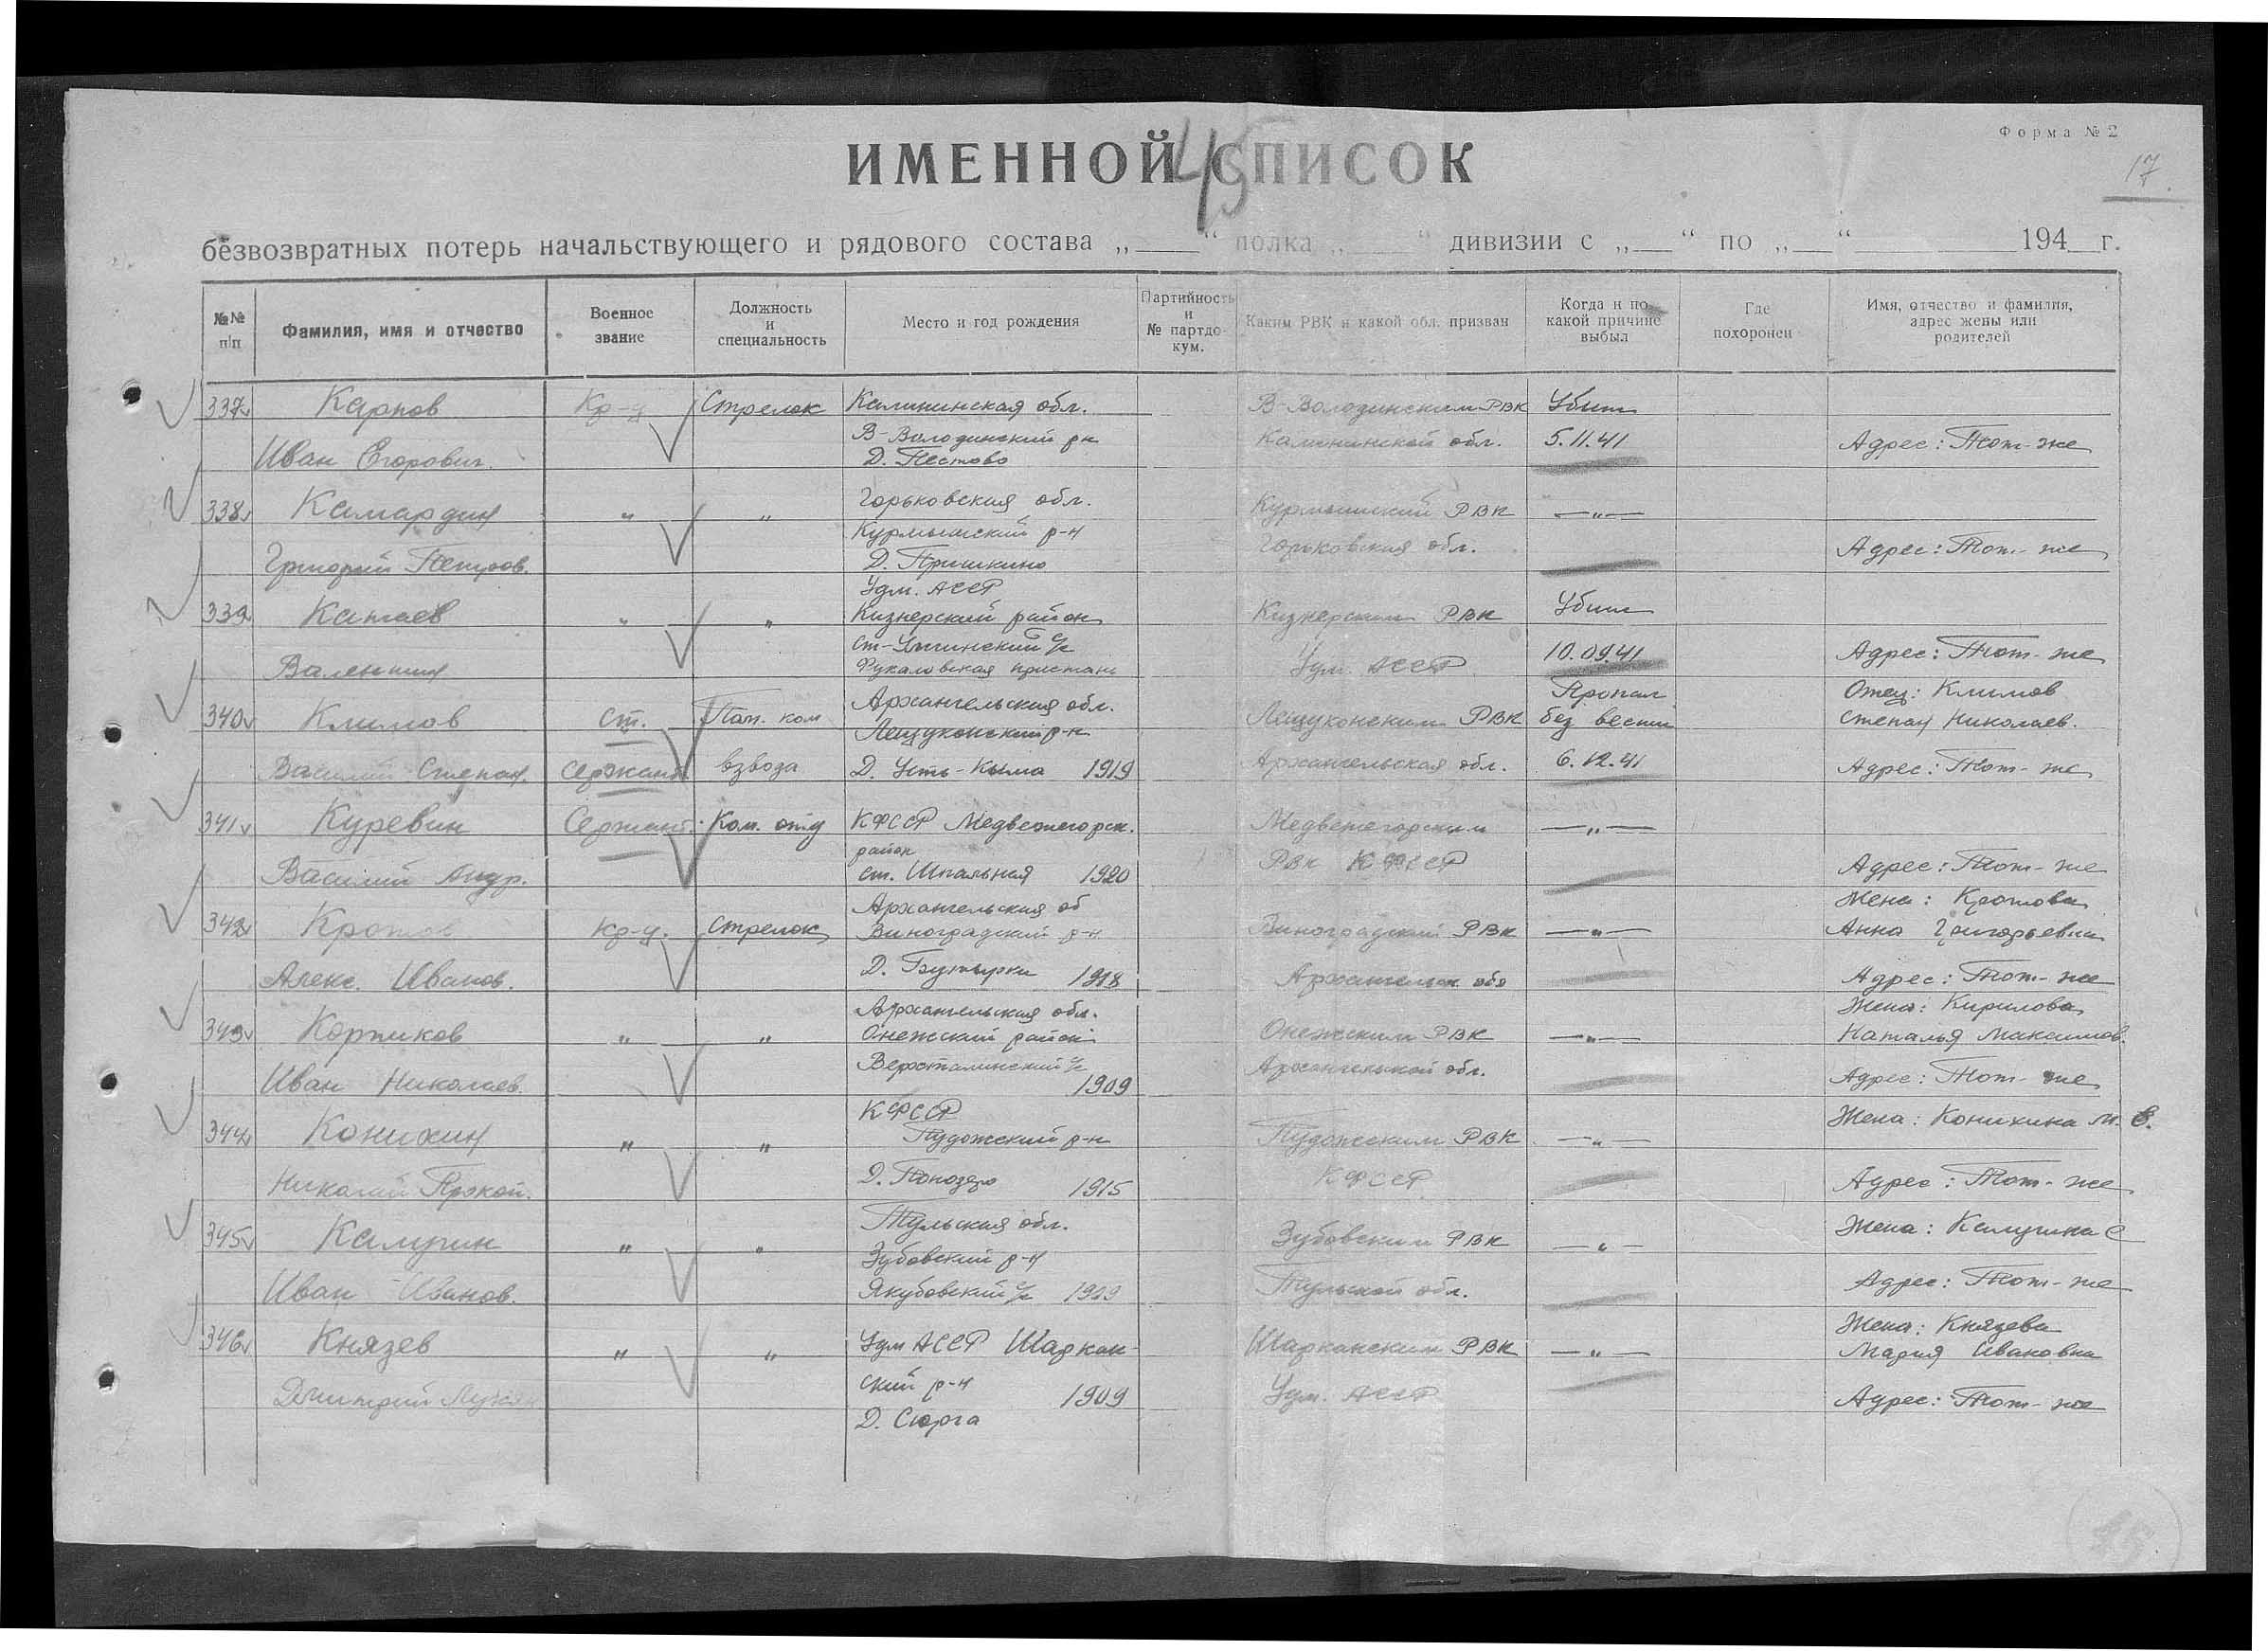 Форма № 2
ИМЕННОЙ СПИСОК
45
17
безвозвратных потерь начальствующего и рядового состава „ “ полка „ “ дивизии с „ “ по „ “ 194 г.
№№ п/п
Фамилия, имя и отчество
Военное звание
Должность и специальность
Место и год рождения
Партийность и № партдокум.
Каким РВК и какой обл. призван
Когда и по какой причине выбыл
Где похоронен
Имя, отчество и фамилия, адрес жены или родителей
337 Карпов Кр-ц Стрелок Калининская обл. В-Володинским РВК Убит
Иван Егорович. В-Володинский рн Калининской обл. 5.11.41 Адрес: Тот-же
Д. Пестово
338 Камардин " " Горьковская обл. Курмышский РВК —"—
Григорий Петров. Курмышский р-н Горьковская обл. Адрес: Тот-же
Д. Пришкино
Удм. АССР
339 Катаев " " Кизнерский район Кизнерским РВК Убит
Валентин с/с Удм. АССР 10.09.41 Адрес: Тот-же
пристань
340 Климов Ст. Пом. ком Архангельская обл. Лешуконским РВК Пропал без вести Отец: Климов
Лешуконский р-н Степан Николаев.
Василий Степан. Сержант взвода Д. Усть-Кыма 1919 Архангельская обл. 6.12.41 Адрес: Тот-же
341 Куревин Сержант Ком. отд КФССР Медвежегорск. Медвежегорским —"—
район
Василий Андр. ст. Шпальная 1920 РВК КФССР Адрес: Тот-же
342 Кротов Кр-ц. Стрелок Архангельская об Виноградский РВК —"— Жена: Кротова
Виноградский р-н Анна Григорьевна
Алекс. Иванов. Д. Бутырки 1918 Архангельск обл Адрес: Тот-же
343 Корпиков " " Архангельская обл. Онежским РВК —"— Жена: Кирилова
Онежский район Наталья Максимов.
Иван Николаев. с/с 1909 Архангельской обл. Адрес: Тот-же
344 Конихин " " КФССР Пудожским РВК —"— Жена: Конихина М. Е.
Пудожский р-н
Николай Прокоп. Д. 1915 КФССР Адрес: Тот-же
345 Калугин " " Тульская обл. Зубовским РВК —"— Жена: Калугина С
Зубовский р-н
Иван Иванов. Якубовский с/с 1909 Тульской обл. Адрес: Тот-же
346 Князев " " Удм АССР Шаркан- Шарканским РВК —"— Жена: Князева
Мария Ивановна
Дмитрий ский р-н 1909 Удм. АССР Адрес: Тот-же
Д. Сюрга